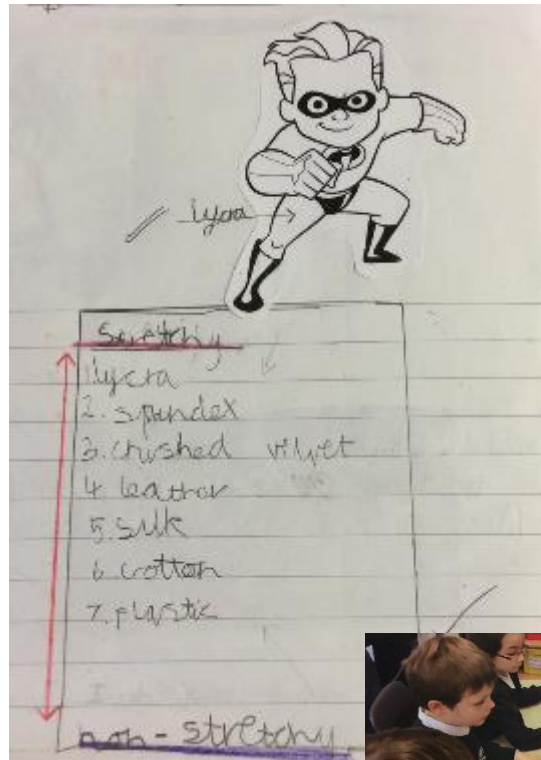 lycra
stretchy
1. lycra
2. spandex
3. crushed velvet
4. leather
5. silk
6. crotton
7. plastic
non-stretchy